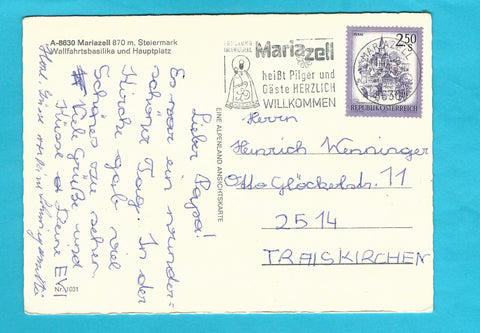 A-8630 Mariazell 870 m, Steiermark
Wallfahrtsbasilika und Hauptplatz
Lieber Papa!
Es war ein wunder-
schöner Tag. In der
Kirche gab viel
Schönes zu sehen.
Viele Grüße und
Küsse Deine EVI
Herzl. Grüße
Nr. 1031
EINE ALPENLAND ANSICHTSKARTE
Mariazell
heißt Pilger und
Gäste HERZLICH
WILLKOMMEN
MARIAZELL
8630
2.50
REPUBLIK ÖSTERREICH
Herrn
Heinrich Wenninger
Otto Glöckelstr. 11
2514
TRAISKIRCHEN